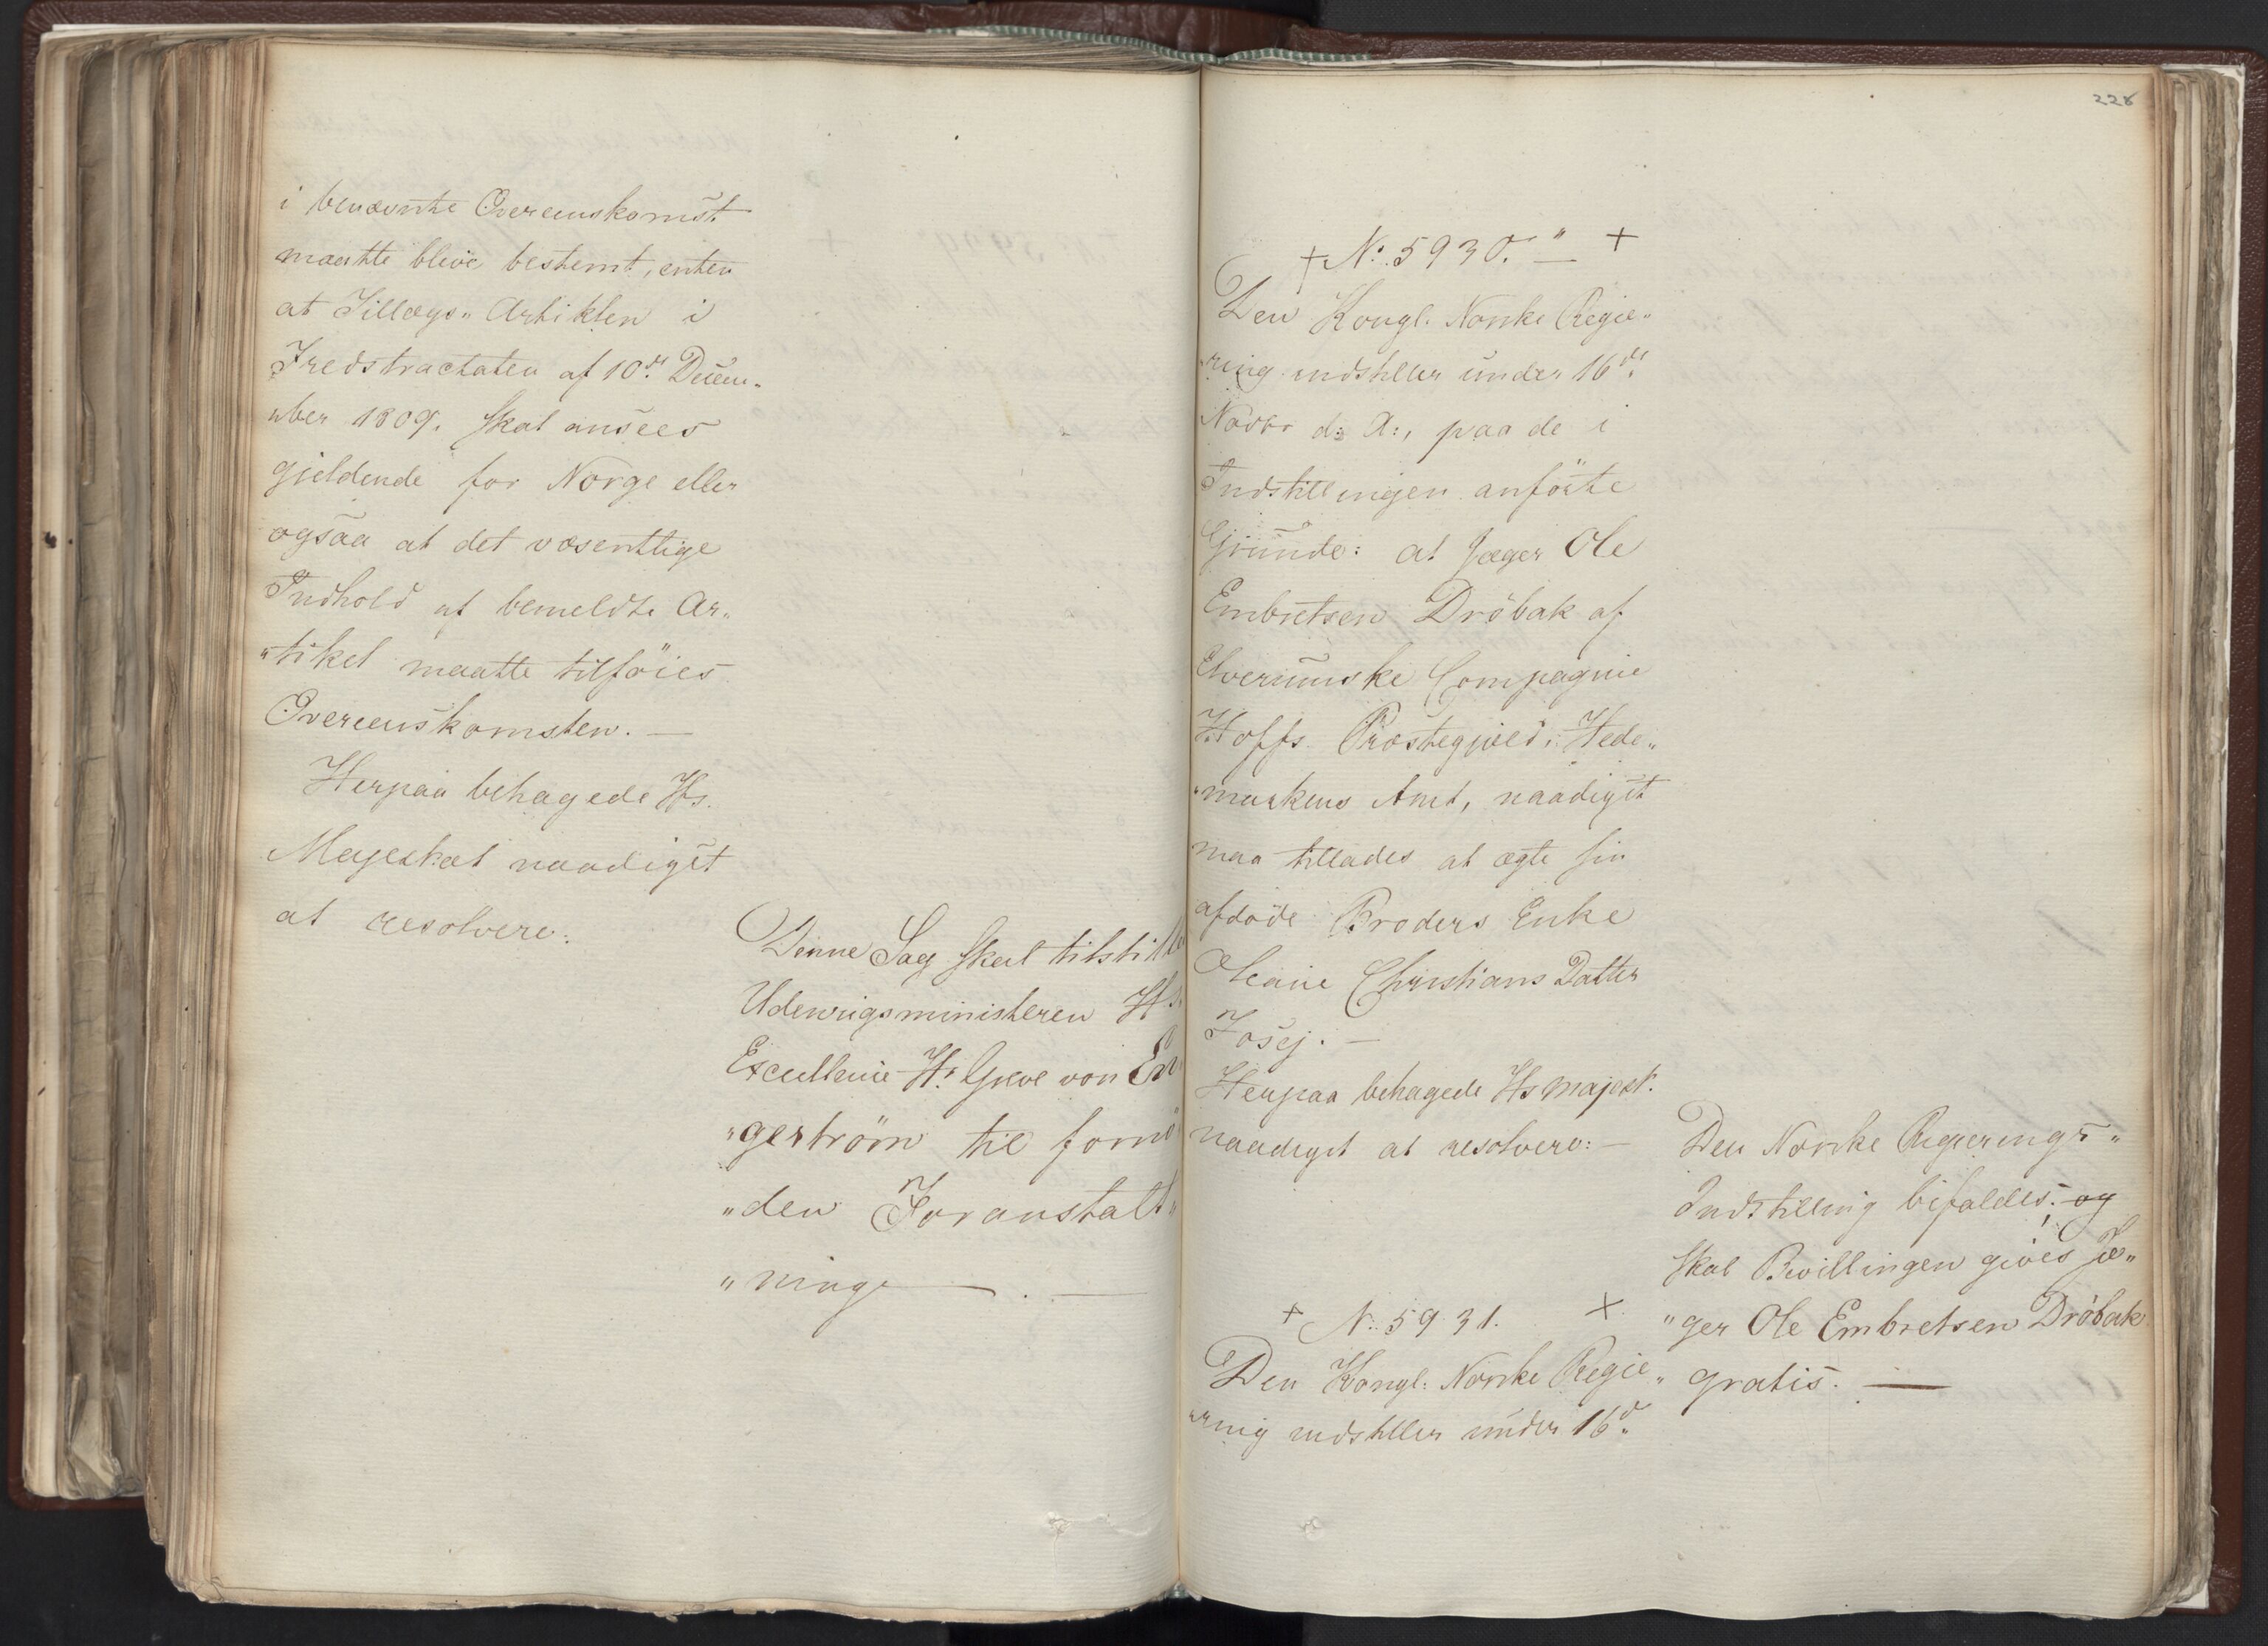 i benævnte Overeenskomst
maatte blive bestemt, enten
at Tillægs„ Artiklen i
Fredstractaten af 10de Decem„
„ber 1809. skal ansees
gieldende for Norge eller
ogsaa at det væsentlige
Indhold af bemeldte Ar„
„tikel maatte tilföies
Overeenskomsten. —
Herpaa behagede Hs.
Majestæt naadigst
at resolvere:
Denne Sag skal tilstilles
Udenrigsministeren Hs.
Excellence Hr Greve von En
„geström til fornö
„den Foranstalt„
„ning — . —
228
+ No. 5930. " — +
Den Kongl. Norske Regie„
„ring indstiller under 16de
Novbr d: A:, paa de i
Indstillingen anförte
Grunde: at Jæger Ole
Embretsen Dröbak af
Elverumske Compagnie
Hoffs Præstegjeld, Hede„
„markens Amt, naadigst
maa tillades at ægte sin
afdöde Broders Enke
Christians Datter
Fosej. —
Herpaa behagede Hs Majest.
naadigst at resolvere: —
Den Norske Regierings„
Indstilling bifaldes; og
skal Bevillingen gives Jæ„
„ger Ole Embretsen Dröbak
gratis. —
+ No. 5931. +
Den Kongl. Norske Regie„
„ring indstiller under 16d